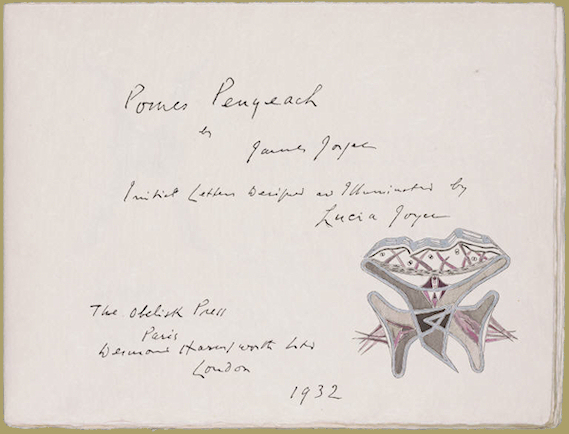 Pomes Penyeach
by
James Joyce
Initial Letters Designed and Illuminated by
Lucia Joyce
The Obelisk Press
Paris
Desmond Harmsworth Ltd
London
1932